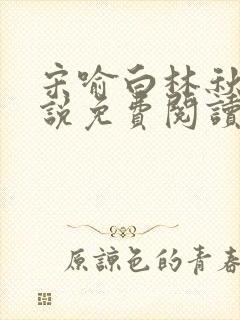 宋喻白林秋
說免費閱讀
原諒色的青春